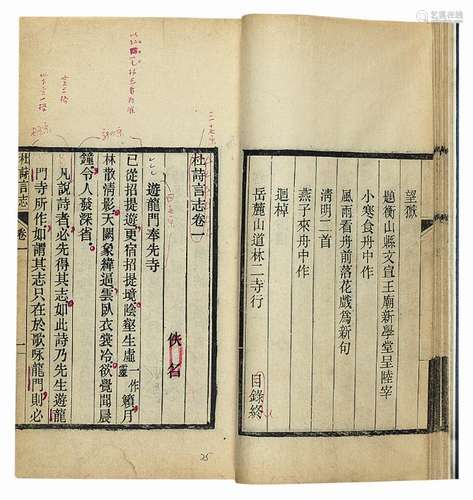 望嶽
題衡山縣文宣王廟新學堂呈陸宰
小寒食舟中作
風雨看舟前落花戲為新句
清明二首
燕子來舟中作
迴棹
岳麓山道林二寺行
目錄終
杜詩言志卷一
佚名
遊龍門奉先寺
已從招提遊更宿招提境陰壑生虛一作靈籟月
林散清影天闕象緯逼雲臥衣裳冷欲覺聞晨
鐘令人發深省
凡說詩者必先得其志如此詩乃先生遊龍
門寺所作如謂其志只在於歌咏龍門則必
杜詩言志
卷一
25